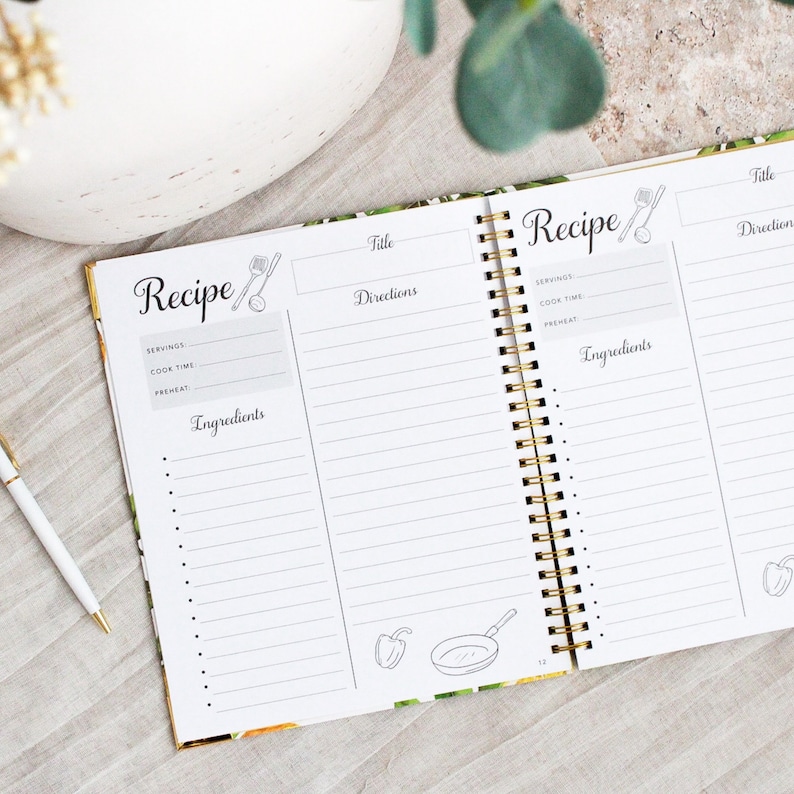 Recipe
Title
Directions
SERVINGS:
COOK TIME:
PREHEAT:
Ingredients
12
Recipe
Title
Directions
SERVINGS:
COOK TIME:
PREHEAT:
Ingredients